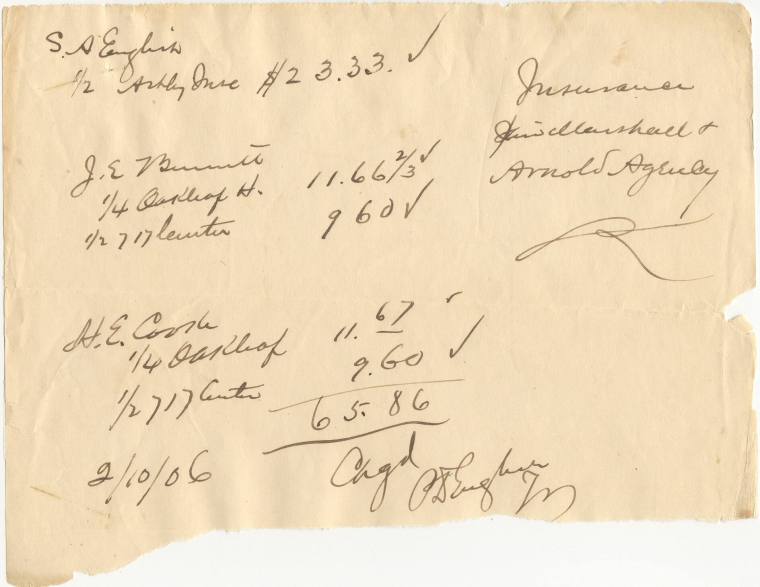 S. A English
1/2 Ashby Inse $23.33. ✓
Insurance
Marshall &
Arnold Agency
J. E Bennett
1/4 Oakleaf H. 11.66 2/3 ✓
1/2 717 Center 9 60 ✓
H. E. Cook
1/4 Oakleaf 11.67
1/2 717 Center 9.60 ✓
65.86
2/10/06 Chgd